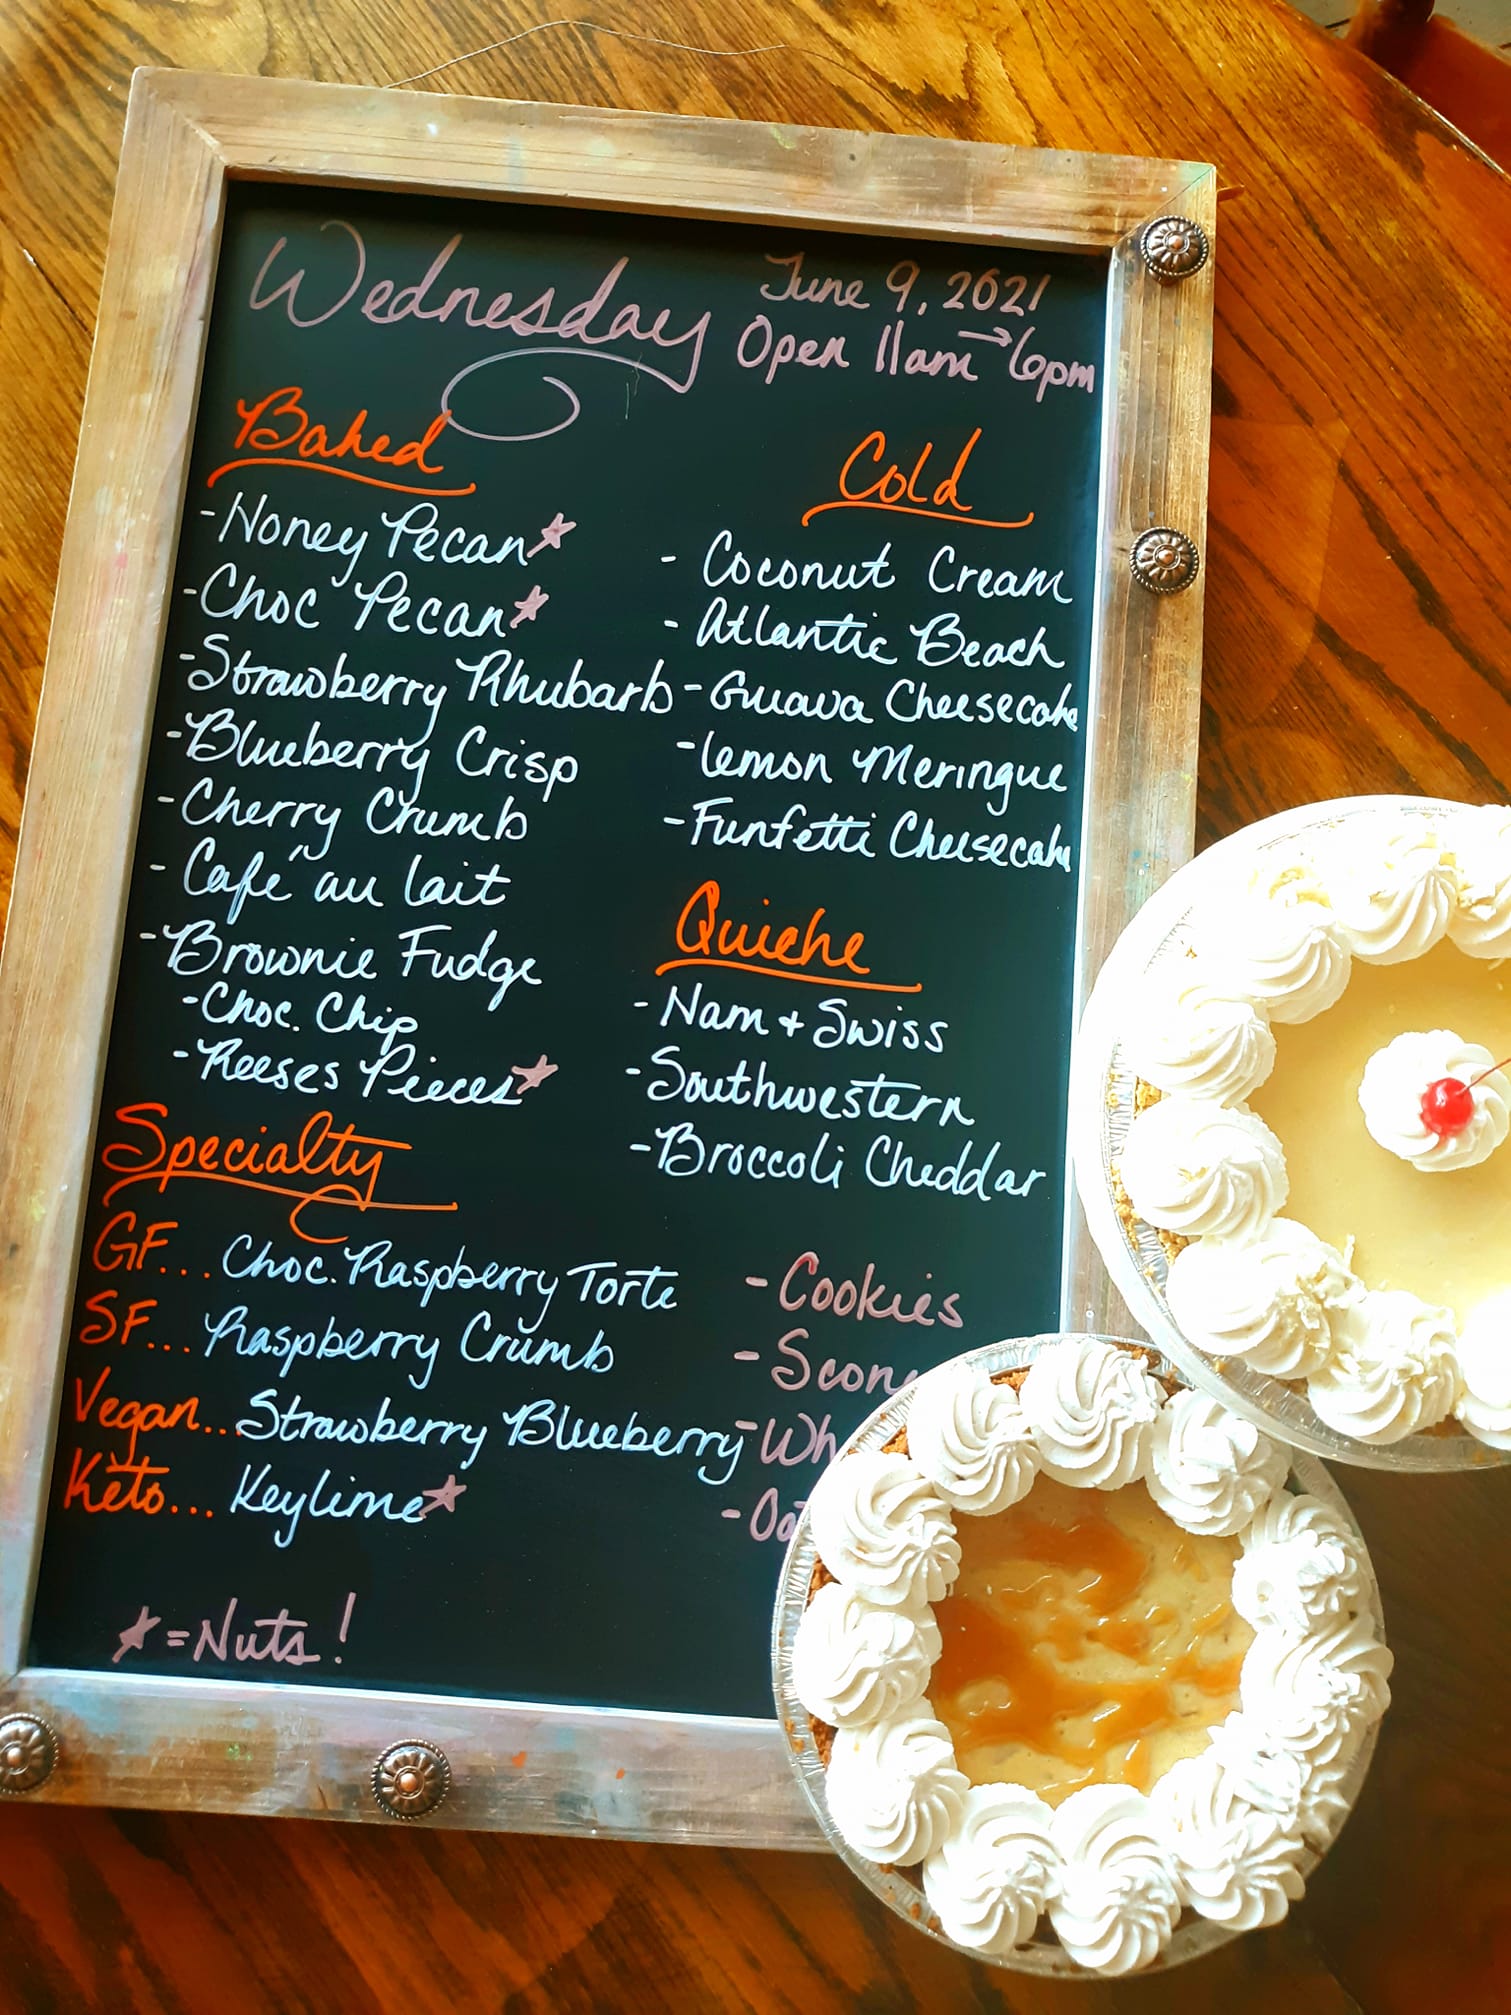 Wednesday
June 9, 2021
Open 11am → 6pm
Baked
- Honey Pecan ★
- Choc Pecan ★
- Strawberry Rhubarb
- Blueberry Crisp
- Cherry Crumb
- Café au lait
- Brownie Fudge
- Choc. Chip
- Reeses Pieces ★
Cold
- Coconut Cream
- Atlantic Beach
- Guava Cheesecake
- Lemon Meringue
- Funfetti Cheesecake
Quiche
- Ham + Swiss
- Southwestern
- Broccoli Cheddar
Specialty
GF... Choc. Raspberry Torte
SF... Raspberry Crumb
Vegan... Strawberry Blueberry
Keto... Keylime ★
- Cookies
★ = Nuts!